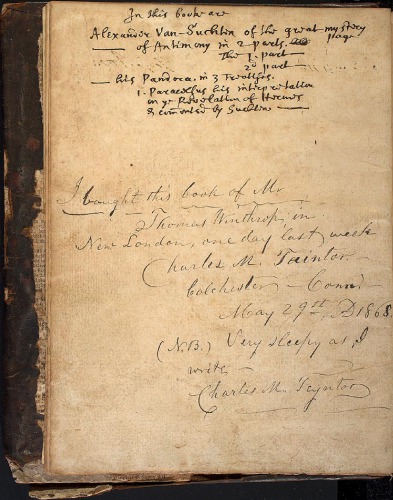 In this booke are
Alexander Van-Suchten of the great mystery
of Antimony in 2 parts. page
The 1. part
2d part
his Pandora in 3 Treatises.
1. Paracelsus his interpretation
on ye Revelation of Hermes
& comented by Suchten
I bought this book of Mr
Thomas Winthrop, in
New London, one day last week
Charles M. Taintor
Colchester - Conn.
May 29st, D 1868.
(N.B.) Very sleepy as I
write -
Charles M. Teyntor